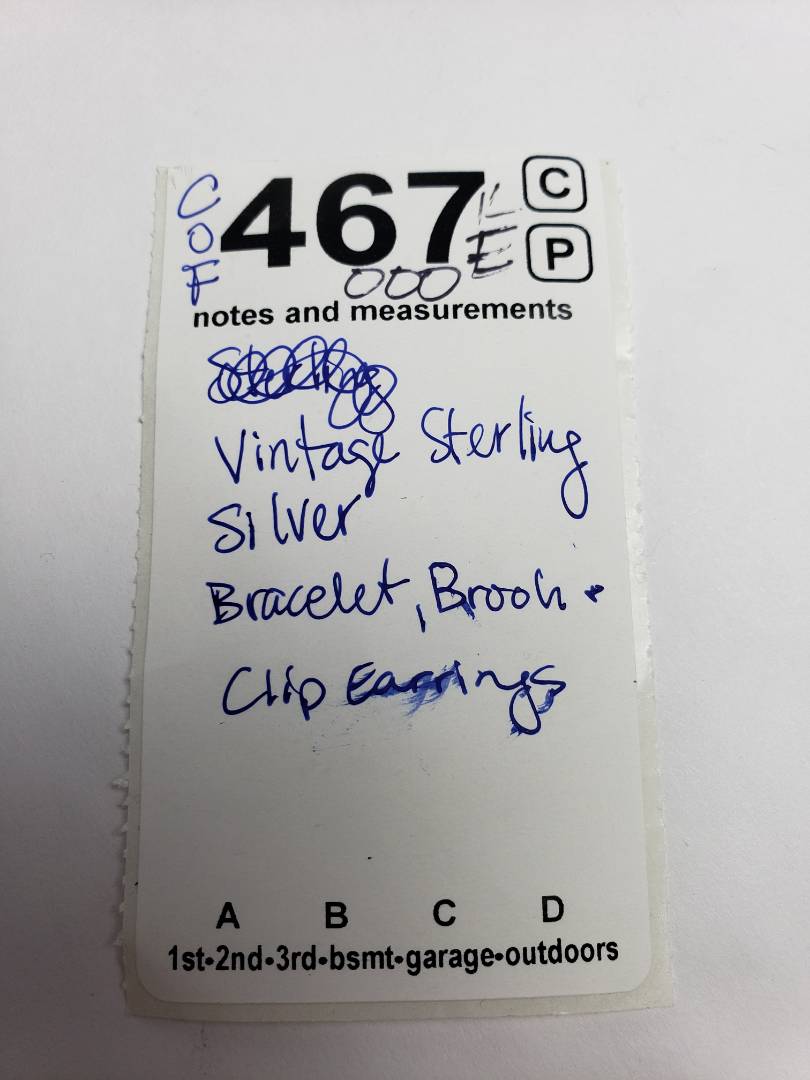 COF 467 LE C
000 P
notes and measurements
Vintage Sterling
Silver
Bracelet, Brooh +
Clip Earrings
A B C D
1st•2nd•3rd•bsmt•garage•outdoors